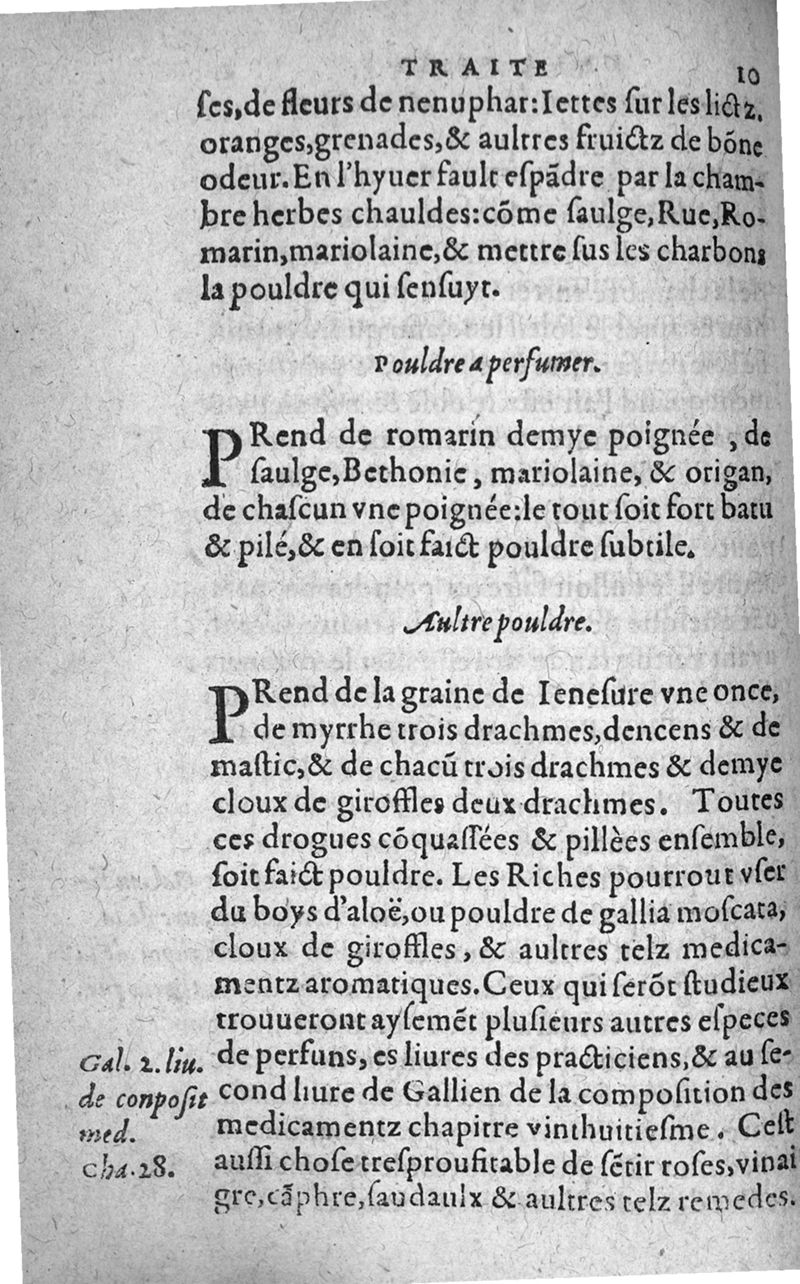 TRAITE 10
ſes,de fleurs de nenuphar:Iettes ſur les lictz,
oranges,grenades,& aultres fruictz de bõne
odeur.En l'hyuer fault eſpãdre par la cham-
bre herbes chauldes:cõme ſaulge,Rue,Ro-
marin,mariolaine,& mettre ſus les charbons
la pouldre qui ſenſuyt.
Pouldre a perfumer.
PRend de romarin demye poignée , de
ſaulge,Bethonie , mariolaine, & origan,
de chaſcun vne poignée:le tout ſoit fort batu
& pilé,& en ſoit faict pouldre ſubtile.
Aultre pouldre.
PRend de la graine de Ieneſure vne once,
de myrrhe trois drachmes,dencens & de
maſtic,& de chacũ trois drachmes & demye
cloux de giroffles deux drachmes. Toutes
ces drogues cõquaſſées & pillèes enſemble,
ſoit faict pouldre. Les Riches pourrout vſer
du boys d'aloë,ou pouldre de gallia moſcata,
cloux de giroffles , & aultres telz medica-
mentz aromatiques.Ceux qui ſerõt ſtudieux
trouueront ayſemẽt pluſieurs autres eſpeces
de perfuns, es liures des practiciens,& au ſe-
cond liure de Gallien de la compoſition des
medicamentz chapitre vinthuitieſme . Ceſt
auſſi choſe treſproufitable de ſẽtir roſes,vinai
gre,cãphre,ſaudaulx & aultres telz remedes.
Gal. 2. liu.
de conpoſit
med.
cha.28.